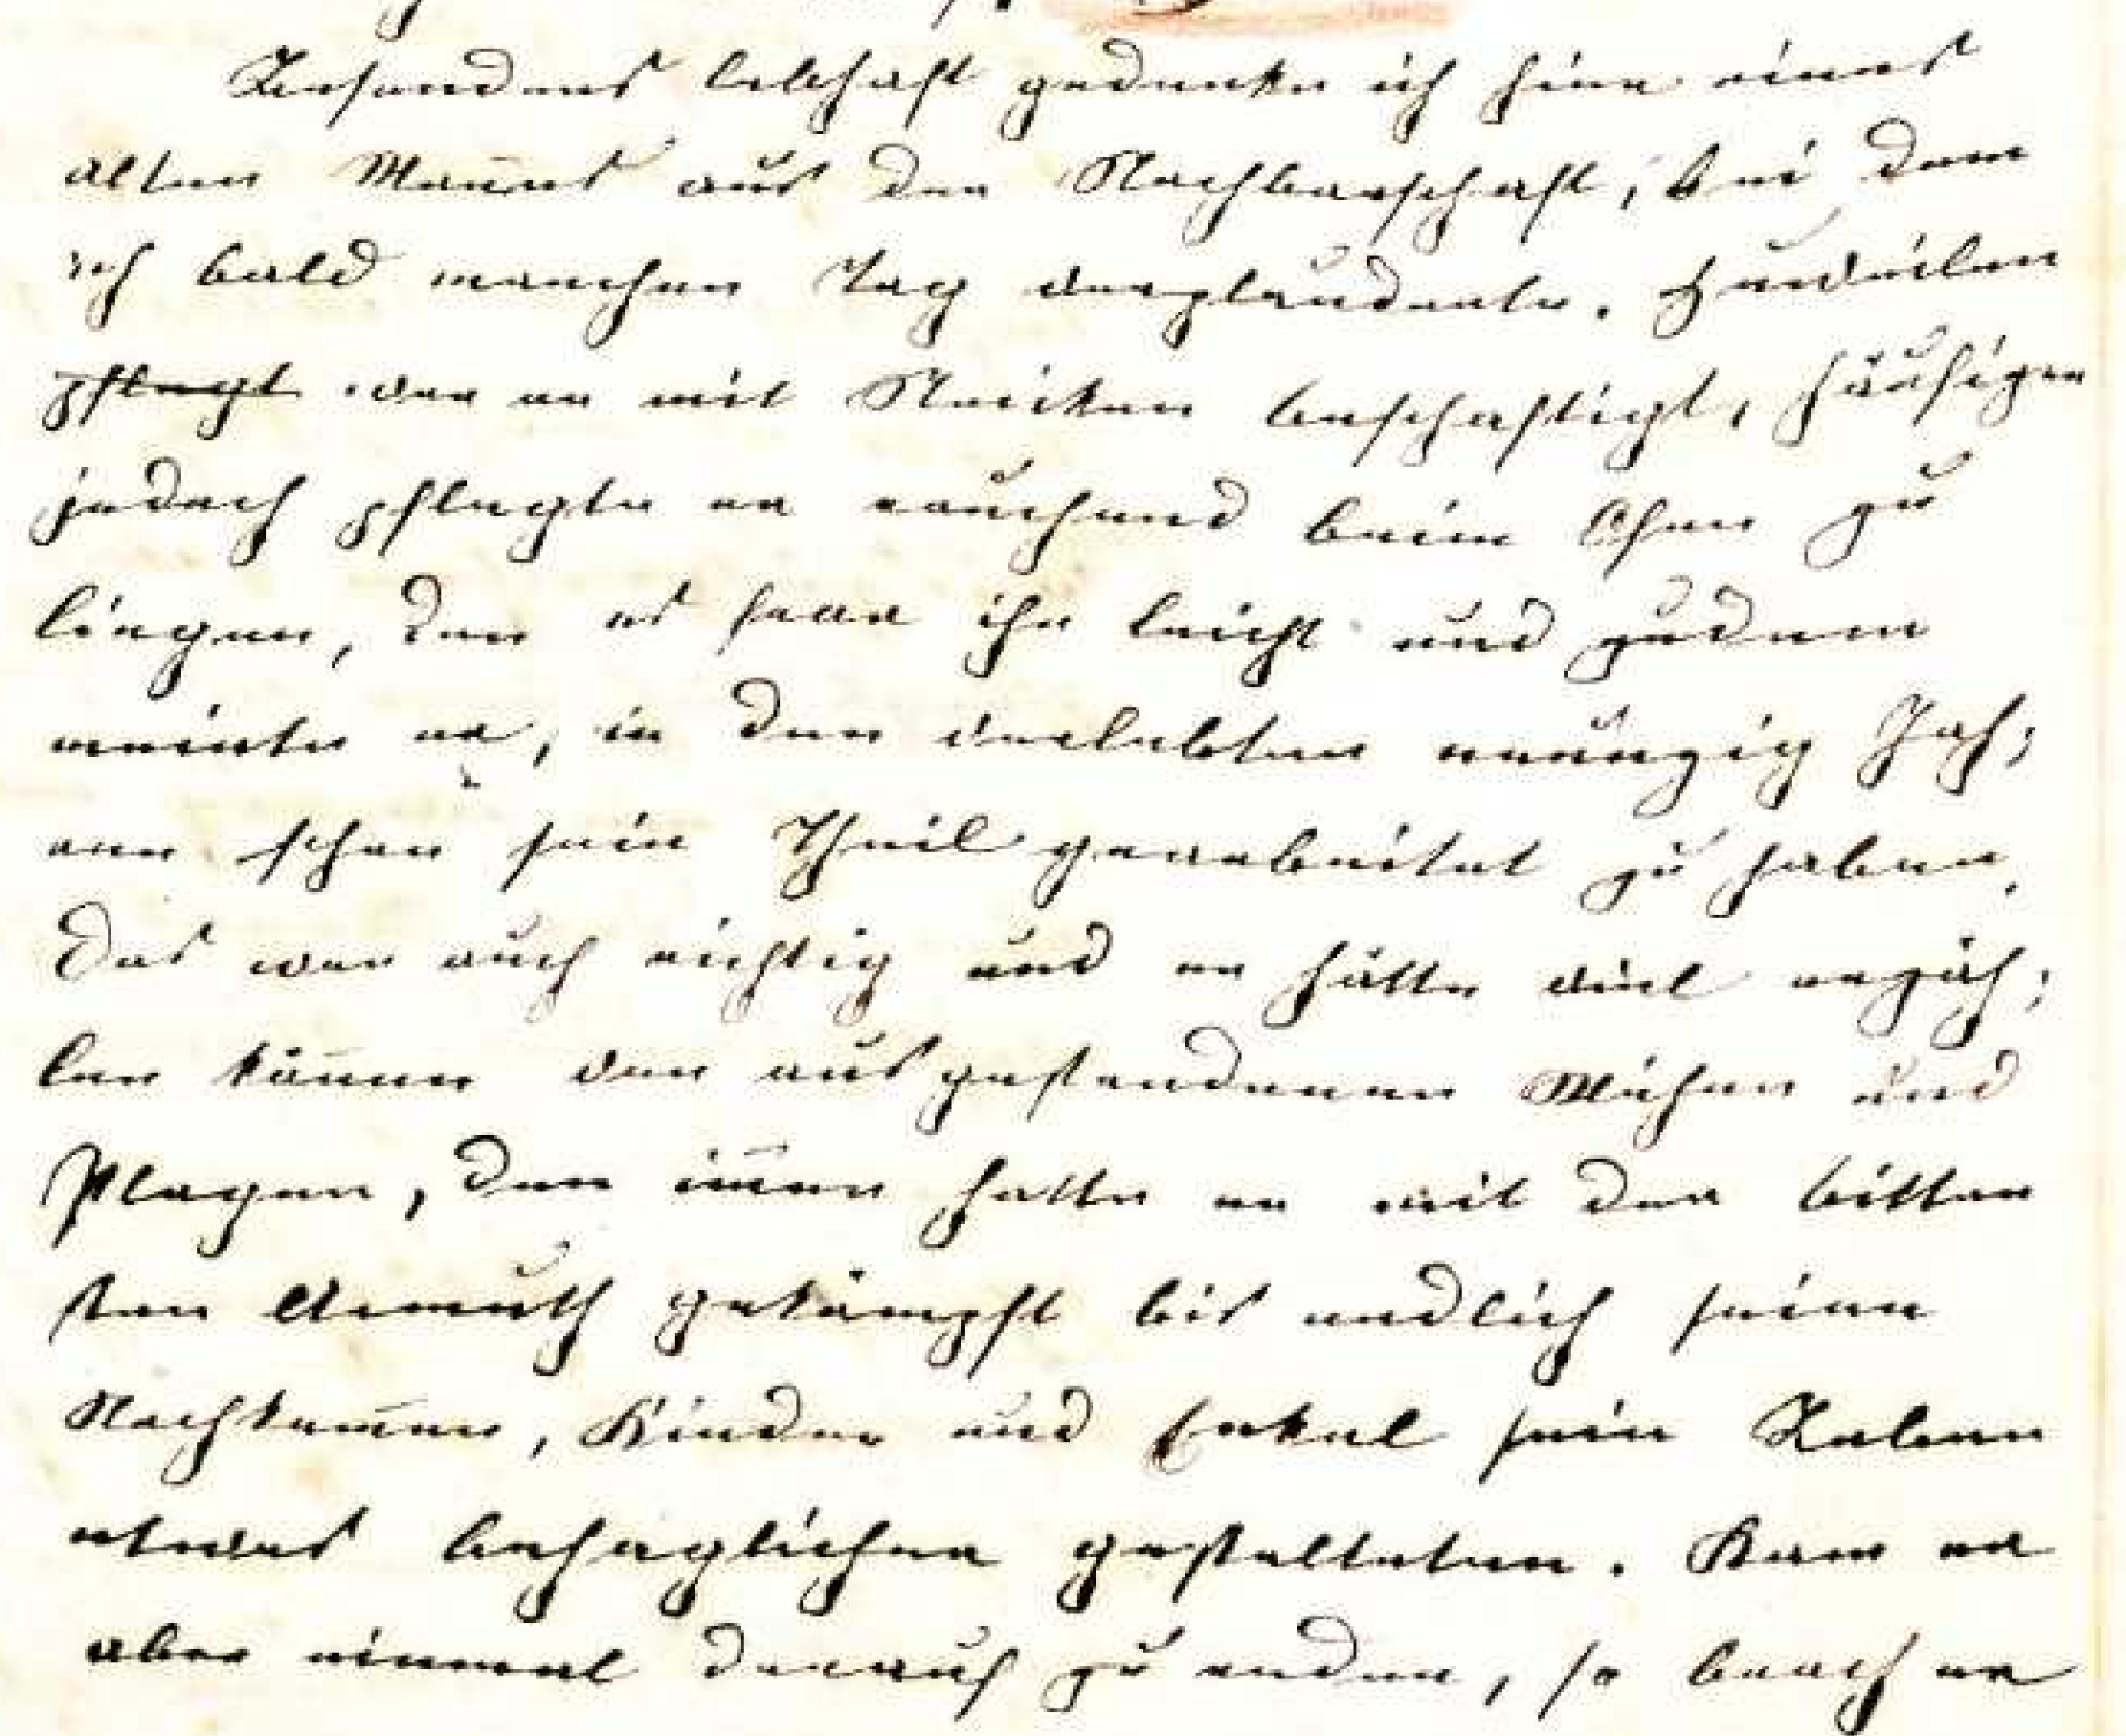 Besonders lebhaft gedenke ich hier eines
alten Mañes aus der Nachbarschaft, bei dem
ich bald manchen Tag verplauderte.
pflegt war er mit Stricken beschaftigt, häufiger
jedoch pflegte er rauchend beim Ofen zu
liegen, den es fror ihn leicht und zudem
meinte er, in den verlebten neunzig Jah;
ren schon sein Theil gearbeitet zu haben.
Das war auch richtig und er hätte viel erzäh;
len köñen von ausgestandenen Mühen und
Plagen, den im̄er hatte er mit der bitter
sten Armuth gekämpft bis endlich seine
Nachkom̄en, Kinder und Enkel sein Leben
etwas behaglicher gestalteten. Kam er
aber einmal darauf zu reden, so brach er